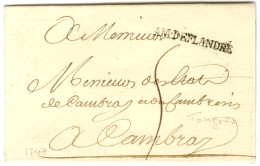 A Messieurs
AM.DEFLANDRE
Messieurs des Etats
de Cambray et du Cambresis
5
A Cambray
1747